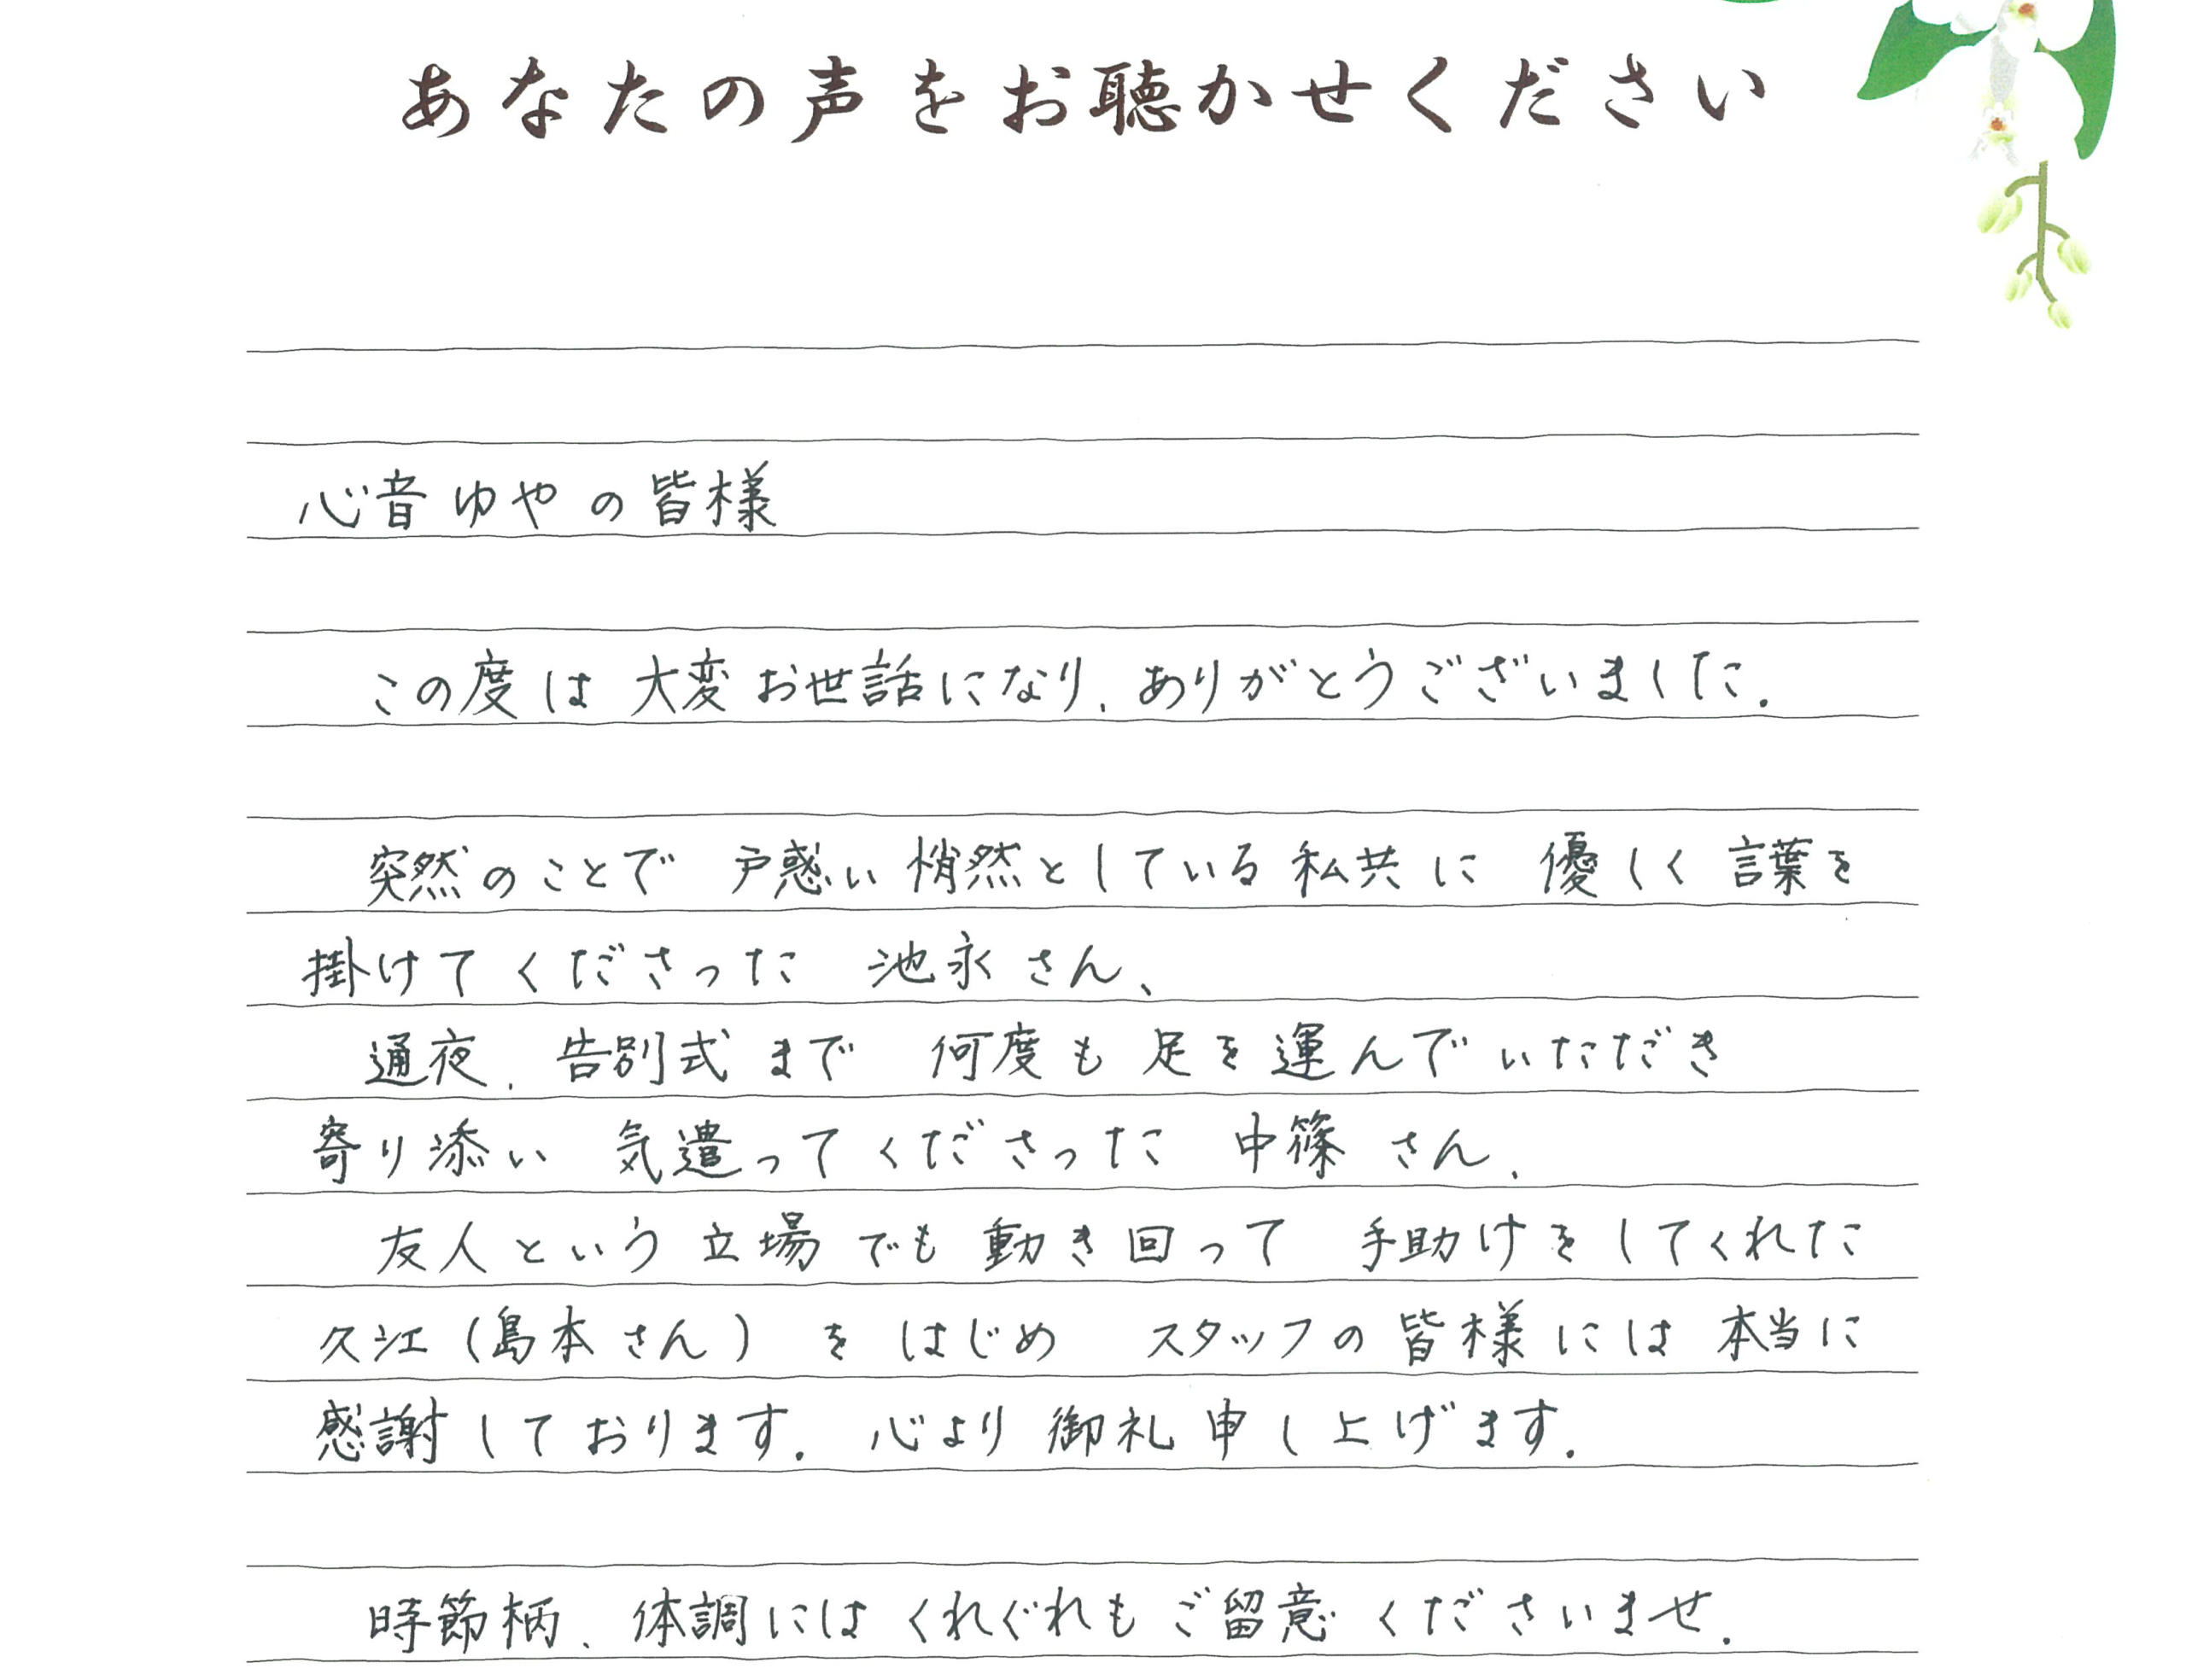 あなたの声をお聴かせください
心音ゆやの皆様
この度は大変お世話になり、ありがとうございました。
突然のことで 戸惑い悄然としている私共に 優しく言葉を
掛けてくださった 池永さん、
通夜、告別式まで 何度も足を運んでいただき
寄り添い 気遣ってくださった 中篠さん、
友人という立場でも動き回って 手助けをしてくれた
久江(島本さん)をはじめ スタッフの皆様には本当に
感謝しております。心より御礼申し上げます。
時節柄、体調にはくれぐれもご留意くださいませ。